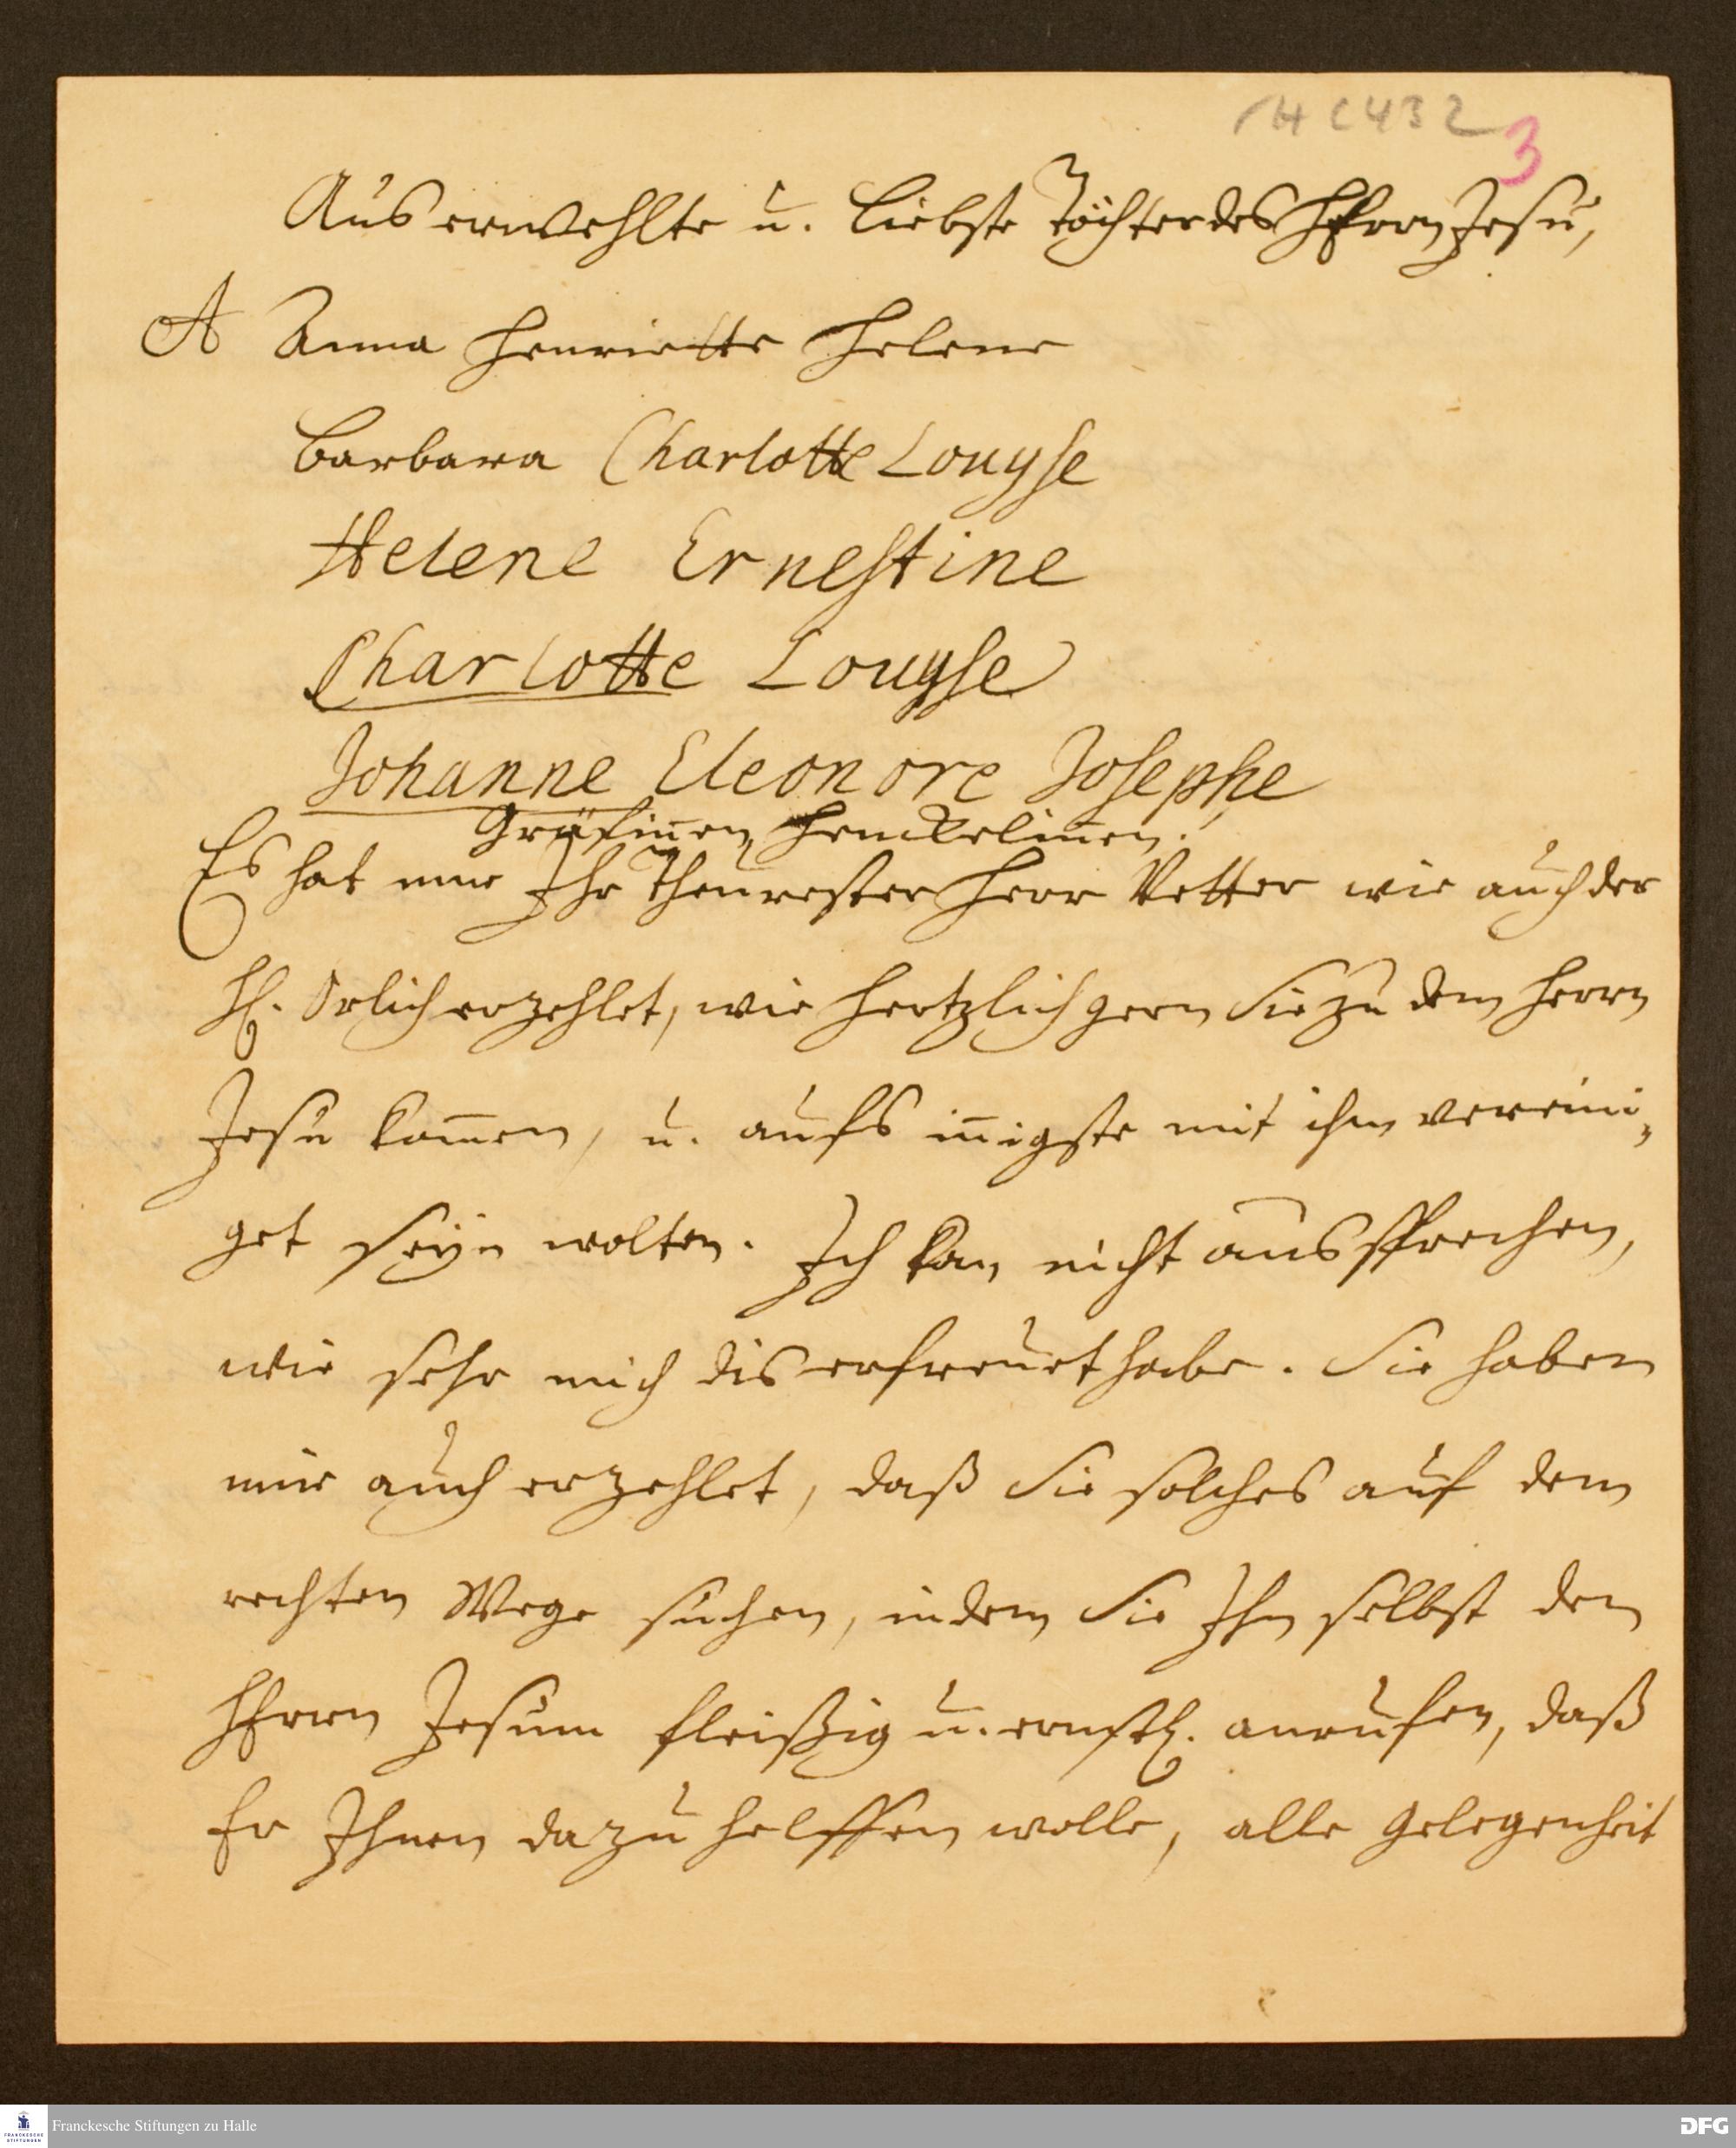 H C 432
3
Auserwehlte u. Liebste Töchter des HErrn Jesu,
A Anna Henriette Helene
Barbara Charlotte Louyse
Helene Ernestine
Charlotte Louyse
Johanne Eleonore Josephe
Gräfin̅en Henckelin̅en.
Es hat mir Ihr Theurester Herr Vetter wie auch der
H. Orlich erzehlet, wie hertzlich gern Sie zu dem Herrn
Jesu kom̅en, u. aufs in̅igste mit ihm vereini-
get seyn wolten. Ich kan nicht aussprechen,
wie sehr mich dis erfreuet habe. Sie haben
mir auch erzehlet, daß Sie solches auf dem
rechten Wege suchen, indem Sie Ihn selbst den
HErrn Jesum fleißig u. ernstl. anrufen, daß
Er Ihnen dazu helffen wolle, alle Gelegenheit
FRANCKESCHE STIFTUNGEN
Franckesche Stiftungen zu Halle
DFG